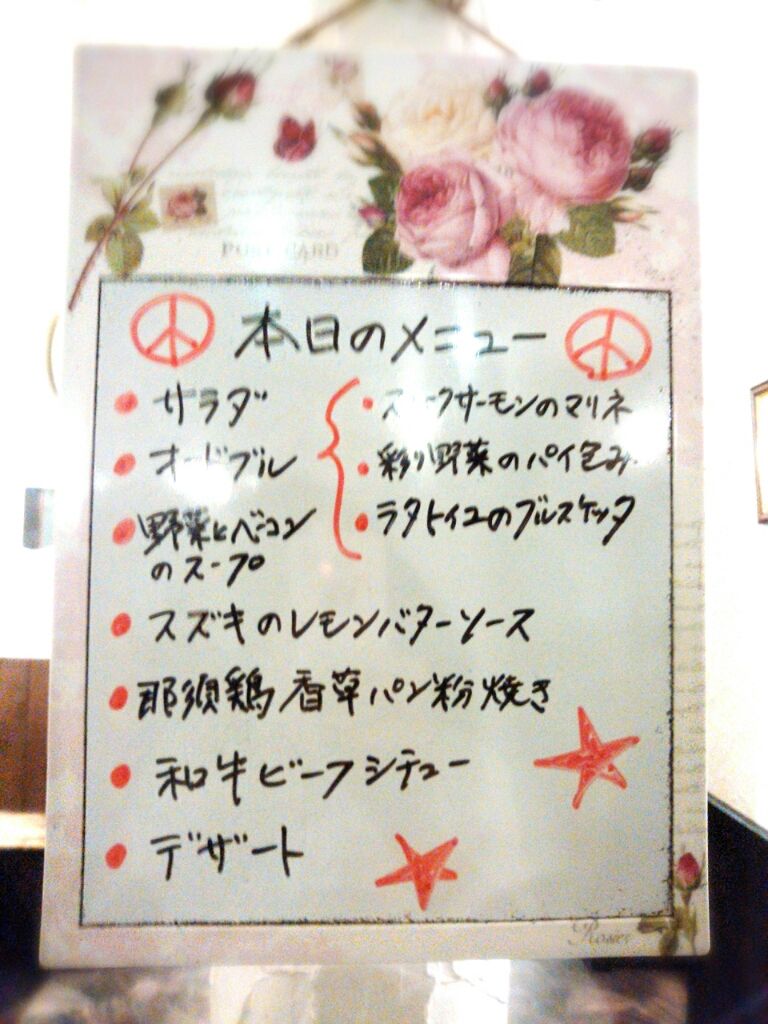 POST CARD
本日のメニュー
サラダ
オードブル
スモークサーモンのマリネ
彩り野菜のパイ包み
ラタトイユのブルスケッタ
野菜とベーコン
のスープ
スズキのレモンバターソース
那須鶏香草パン粉焼き
和牛ビーフシチュー
デザート
Roses